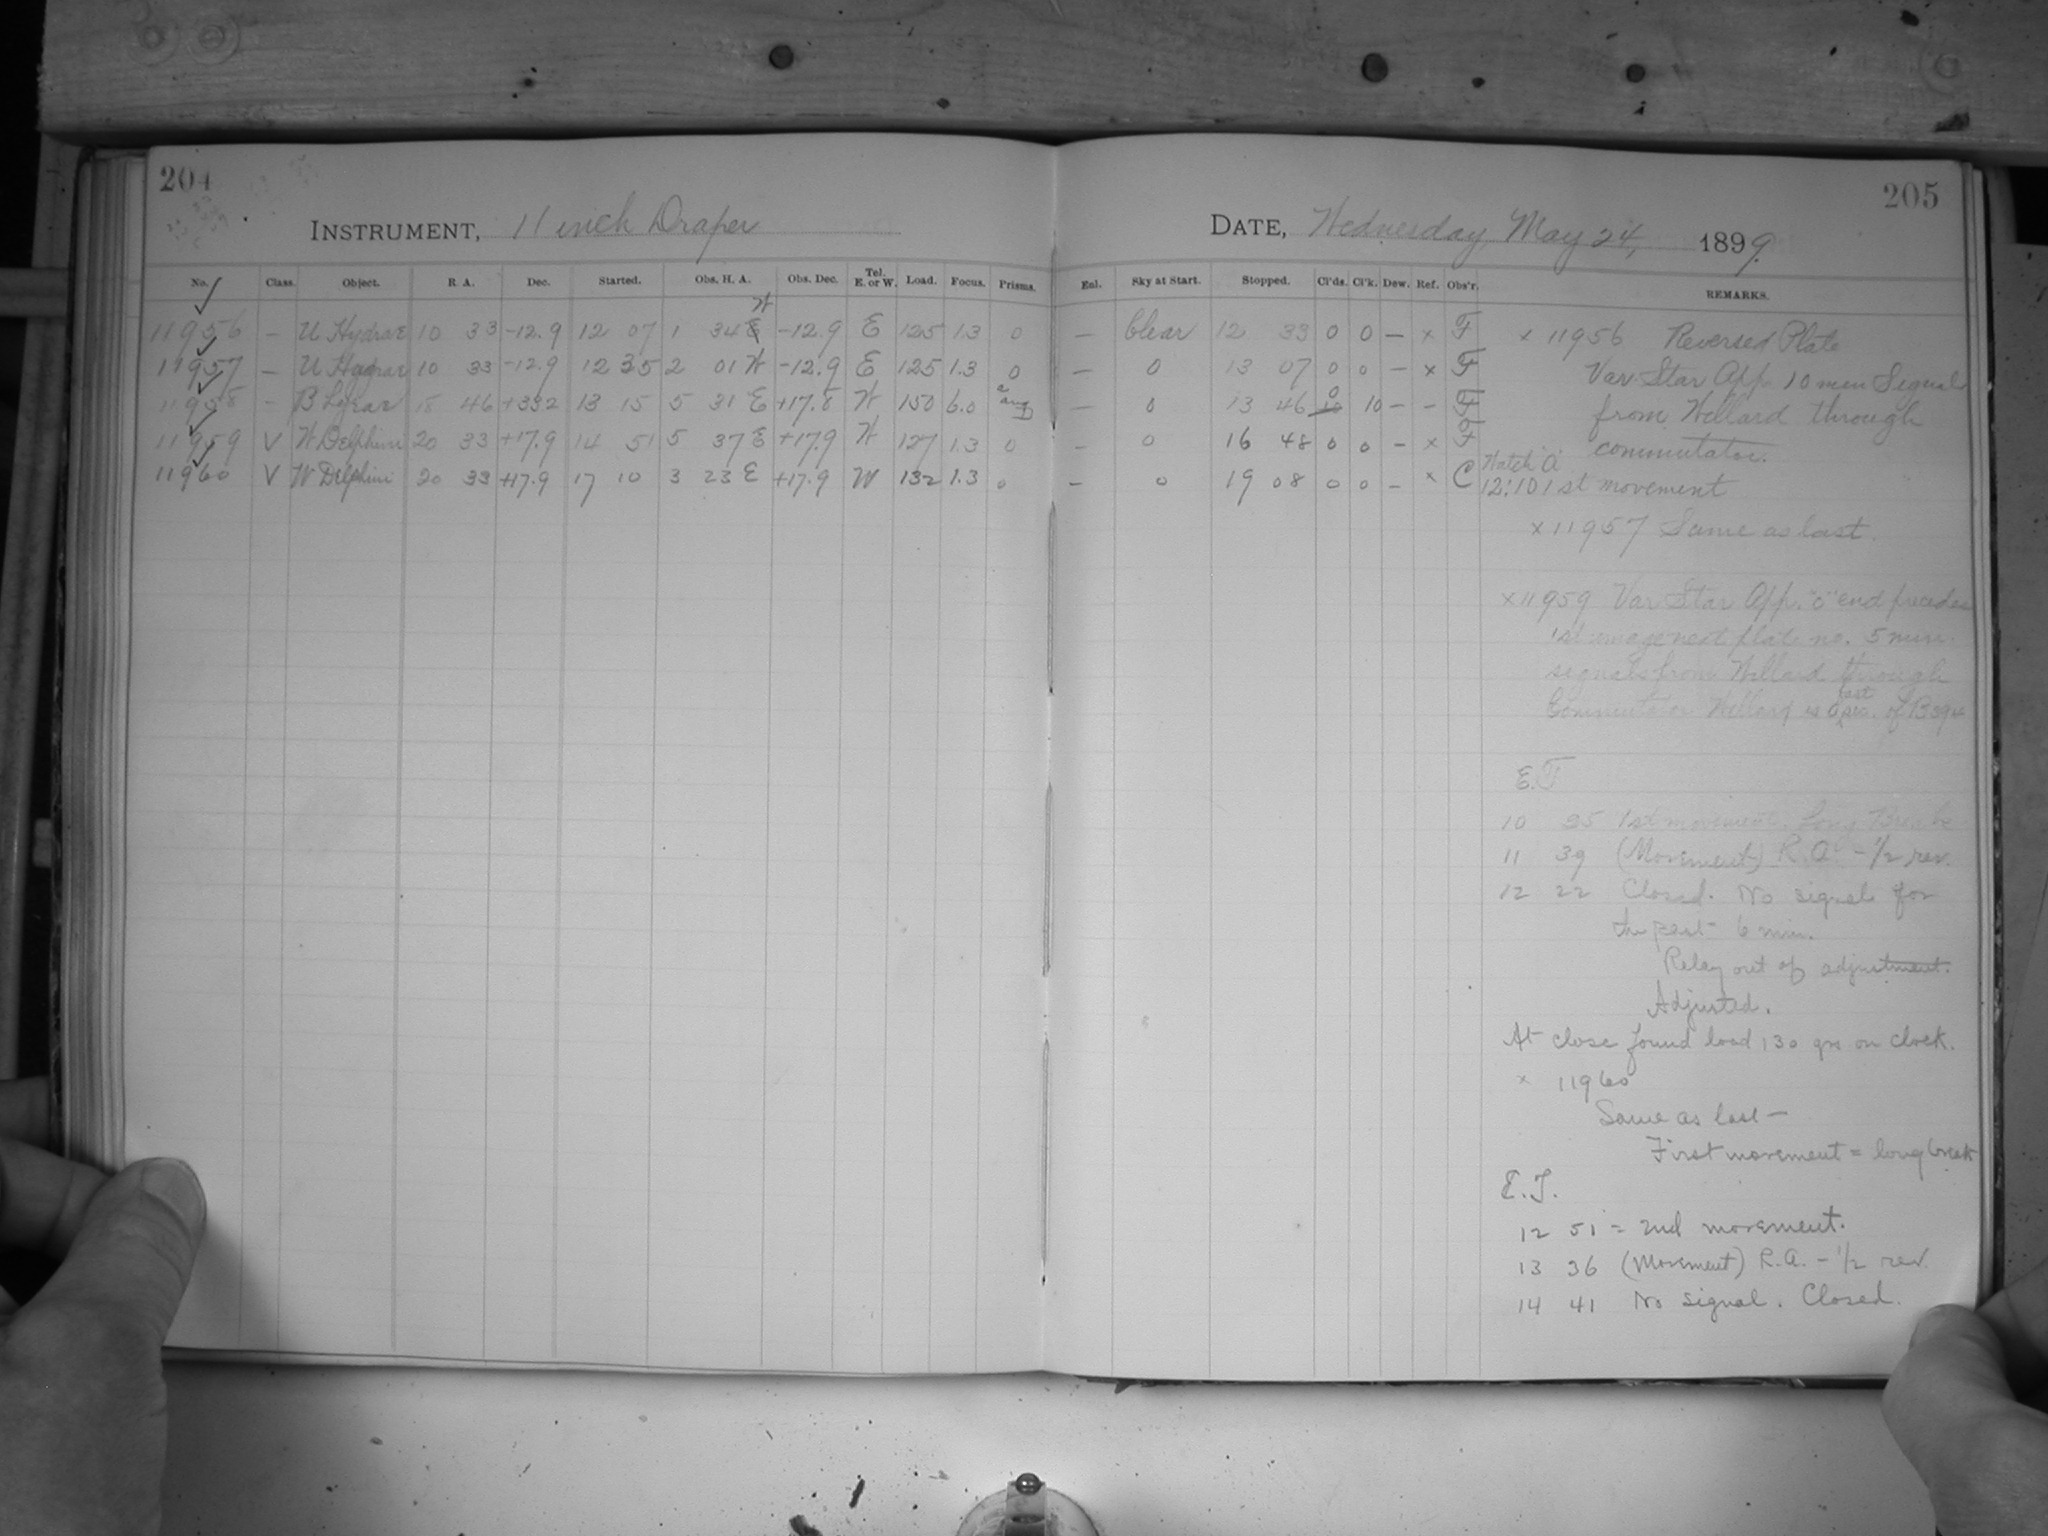 204
205
INSTRUMENT, 11 inch Draper
DATE, Wednesday May 24, 1899.
No. Class. Object. R. A. Dec. Started. Obs. H. A. Obs. Dec. Tel. E. or W. Load. Focus. Prisms. Enl. Sky at Start. Stopped. Cl'ds. Cl'k. Dew. Ref. Obs'r. REMARKS.
11956 — U Hydrae 10 33 -12.9 12 07 1 34 W -12.9 E 125 1.3 0 — Clear 12 33 0 0 — x F
11957 — U Hydrae 10 33 -12.9 12 35 2 01 W -12.9 E 125 1.3 0 — 0 13 07 0 0 — x F
11958 — B Lyrae 18 46 +33.2 13 15 5 31 E +17.8 W 150 6.0 — 0 13 46 0 10 — — F
11959 V W Delphini 20 33 +17.9 14 51 5 37 E +17.9 W 127 1.3 0 — 0 16 48 0 0 — x F
11960 V W Delphini 20 33 +17.9 17 10 3 23 E +17.9 W 132 1.3 0 — 0 19 08 0 0 — x C
x 11956 Reversed Plate
Var. Star App. 10 min Signal
from Willard through
commutator.
Watch "A"
12:10 1st movement
x 11957 Same as last.
x 11959 Var Star App. "0" end precedes
1st image next plate no. 5 min.
signals from Willard through
Commutator Willard is last
E.T
10 35 1st movement. Long Break
11 39 (Movement) R.A. -1/2 rev.
12 22 Closed. No signals for
the past 6 min.
Relay out of adjustment.
Adjusted.
At close found load 130 grs on clock.
x 11960
Same as last —
First movement = long break
E.T.
12 51 = 2nd movement.
13 36 (Movement) R.A. -1/2 rev.
14 41 No signal. Closed.